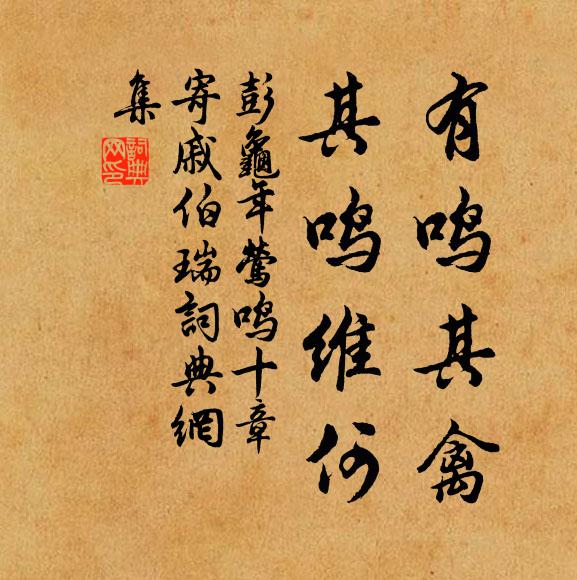 有鸣其禽
其鸣维何
彭龜年鶯鸣十章
寄戚伯瑞詞典網
集
詞典
网印